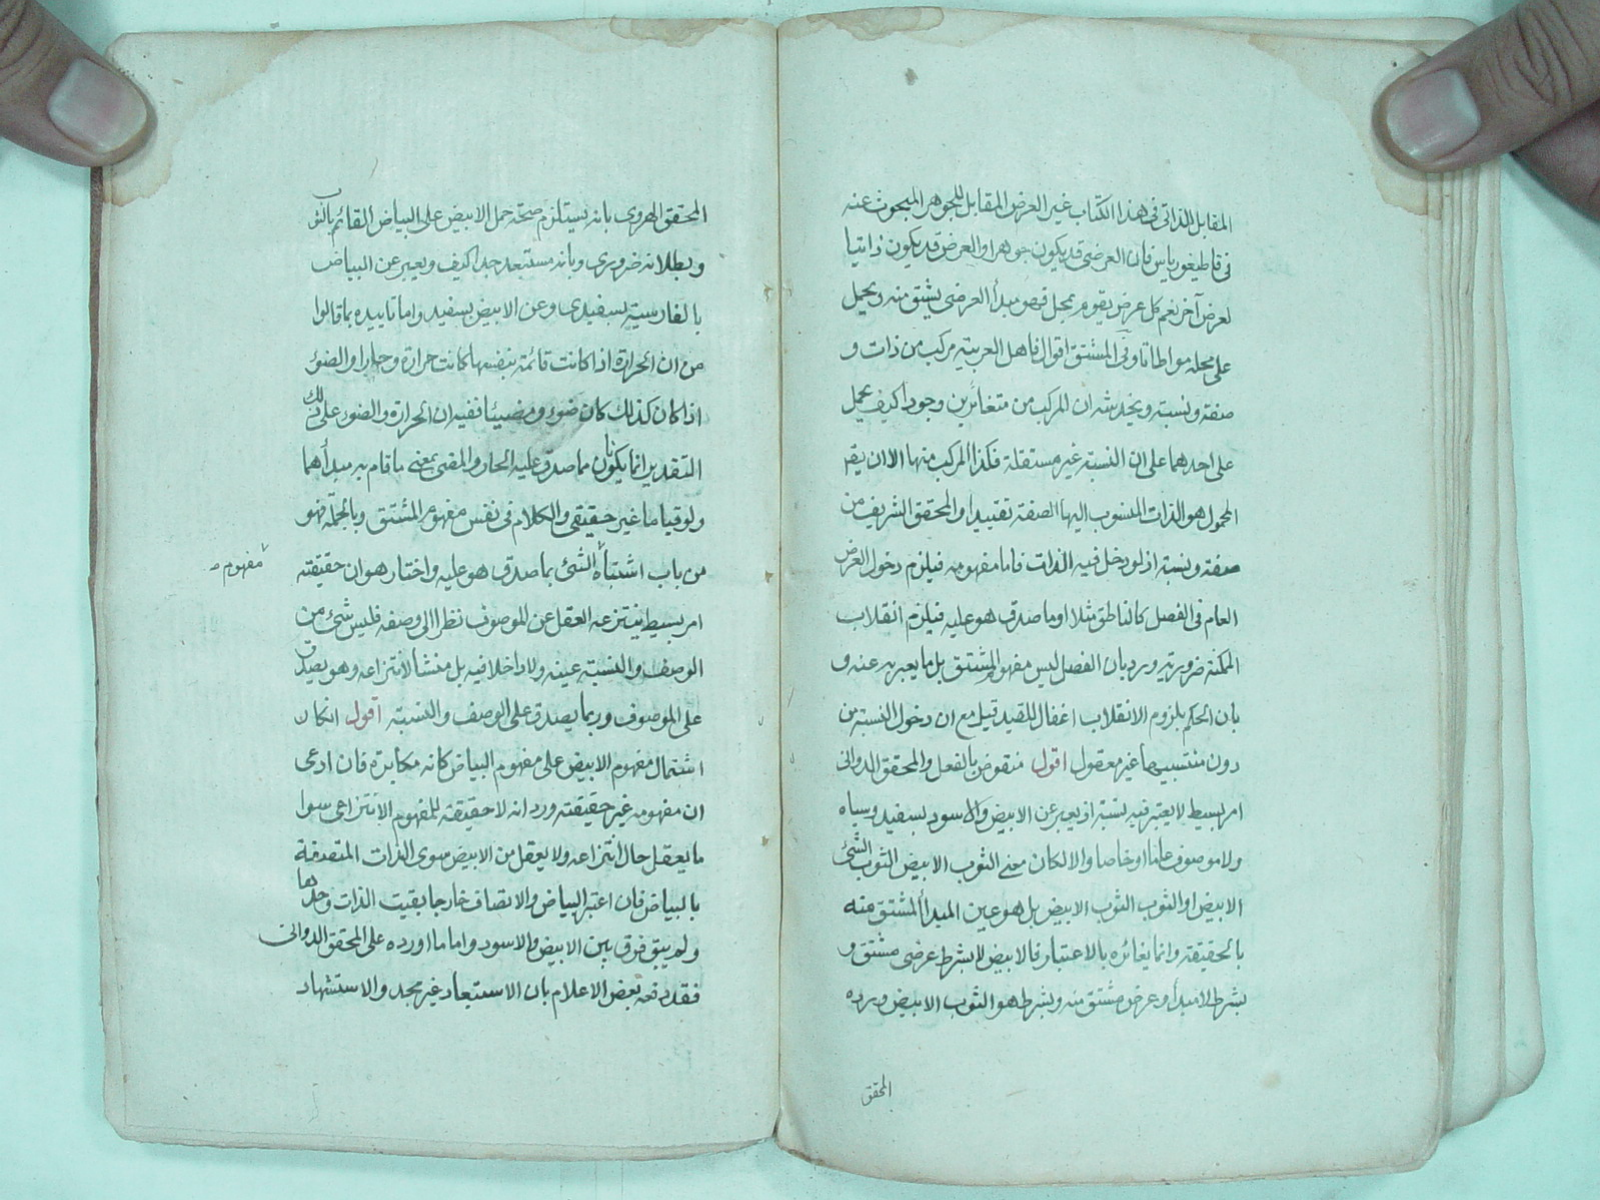 المقابل الذاتي في هذا الكتاب غير العرض المقابل للجوهر المبحوث عنه
في قاطيغورياس فان العرضي قد يكون جوهرا والعرض قد يكون ذاتيا
لعرض آخر نعم كل عرض يقوم بمحل فهو مبدأ العرضي يشتق منه ويحمل
على محله مواطاتا وفي المشتق اقوال فاهل العربية مركب من ذات و
صفة ونسبة ويخدشه ان المركب من متغائرين وجودا كيف يحمل
على احدهما على ان النسبة غير مستقلة فكذا المركب منها الا ان يقر
المحمول هو الذات المنسوب اليها الصفة تقييدا والمحقق الشريف من
صفة ونسبة اذ لو دخل فيه الذات فاما مفهومه فيلزم دخول العرض
العام في الفصل كالناطق مثلا او ما صدق هو عليه فيلزم انقلاب
الممكنة ضرورية ورد بان الفصل ليس مفهوم المشتق بل ما يعبر به عنه و
بان الحكم بلزوم الانقلاب اغفال للقيد قيل مع ان دخول النسبة من
دون منتسبيها غير معقول اقول منقوض بالفعل والمحقق الدواني
امر بسيط لا يعتبر فيه نسبة اذ يعبر عن الابيض والاسود بسفيد وسياه
ولا موصوف عاما او خاصا والا لكان معنى الثوب الابيض الثوب الشئ
الابيض او الثوب الثوب الابيض بل هو عين المبدأ المشتق منه
بالحقيقة وانما يغائره بالاعتبار فالابيض لا بشرط عرضي مشتق و
بشرط لا مبدأ وعرض مشتق منه وبشرط هو الثوب الابيض ورده
المحقق
المحقق الهروي بانه يستلزم صحة حمل الابيض على البياض القائم بالثوب
وبطلانه ضروري وبانه مستبعد جدا كيف ويعبر عن البياض
بالفارسية بسفيدي وعن الابيض بسفيد واما تاييده بما قالوا
من ان الحرارة اذا كانت قائمة بنفسها كانت حرارة وحارا والضوء
اذا كان كذلك كان ضوء ومضيئا ففيه ان الحرارة والضوء على ذلك
التقدير انما يكونان مما صدق عليه الحار والمضئ بمعنى ما قام به مبدأهما
ولو قياما غير حقيقي والكلام في نفس مفهوم المشتق وبالجملة فهو
من باب اشتباه الشئ بما صدق هو عليه واختار هو ان حقيقته
مفهوم
امر بسيط ينتزعه العقل عن الموصوف نظرا الى وصفه فليس شئ من
الوصف والنسبة عينه ولا داخلا فيه بل منشأ لانتزاعه وهو يصدق
على الموصوف وربما يصدق على الوصف والنسبة اقول انكار
اشتمال مفهوم الابيض على مفهوم البياض كانه مكابرة فان ادعى
ان مفهومه غير حقيقته ورد انه لا حقيقة للمفهوم الانتزاعي سوا
ما يعقل حال انتزاعه ولا يعقل من الابيض سوى الذات المتصفة
بالبياض فان اعتبر البياض والاتصاف خارجا بقيت الذات وحدها
ولم يبق فرق بين الابيض والاسود واما ما اورده على المحقق الدواني
فقد دفعه بعض الاعلام بان الاستبعاد غير مجد والاستشهاد